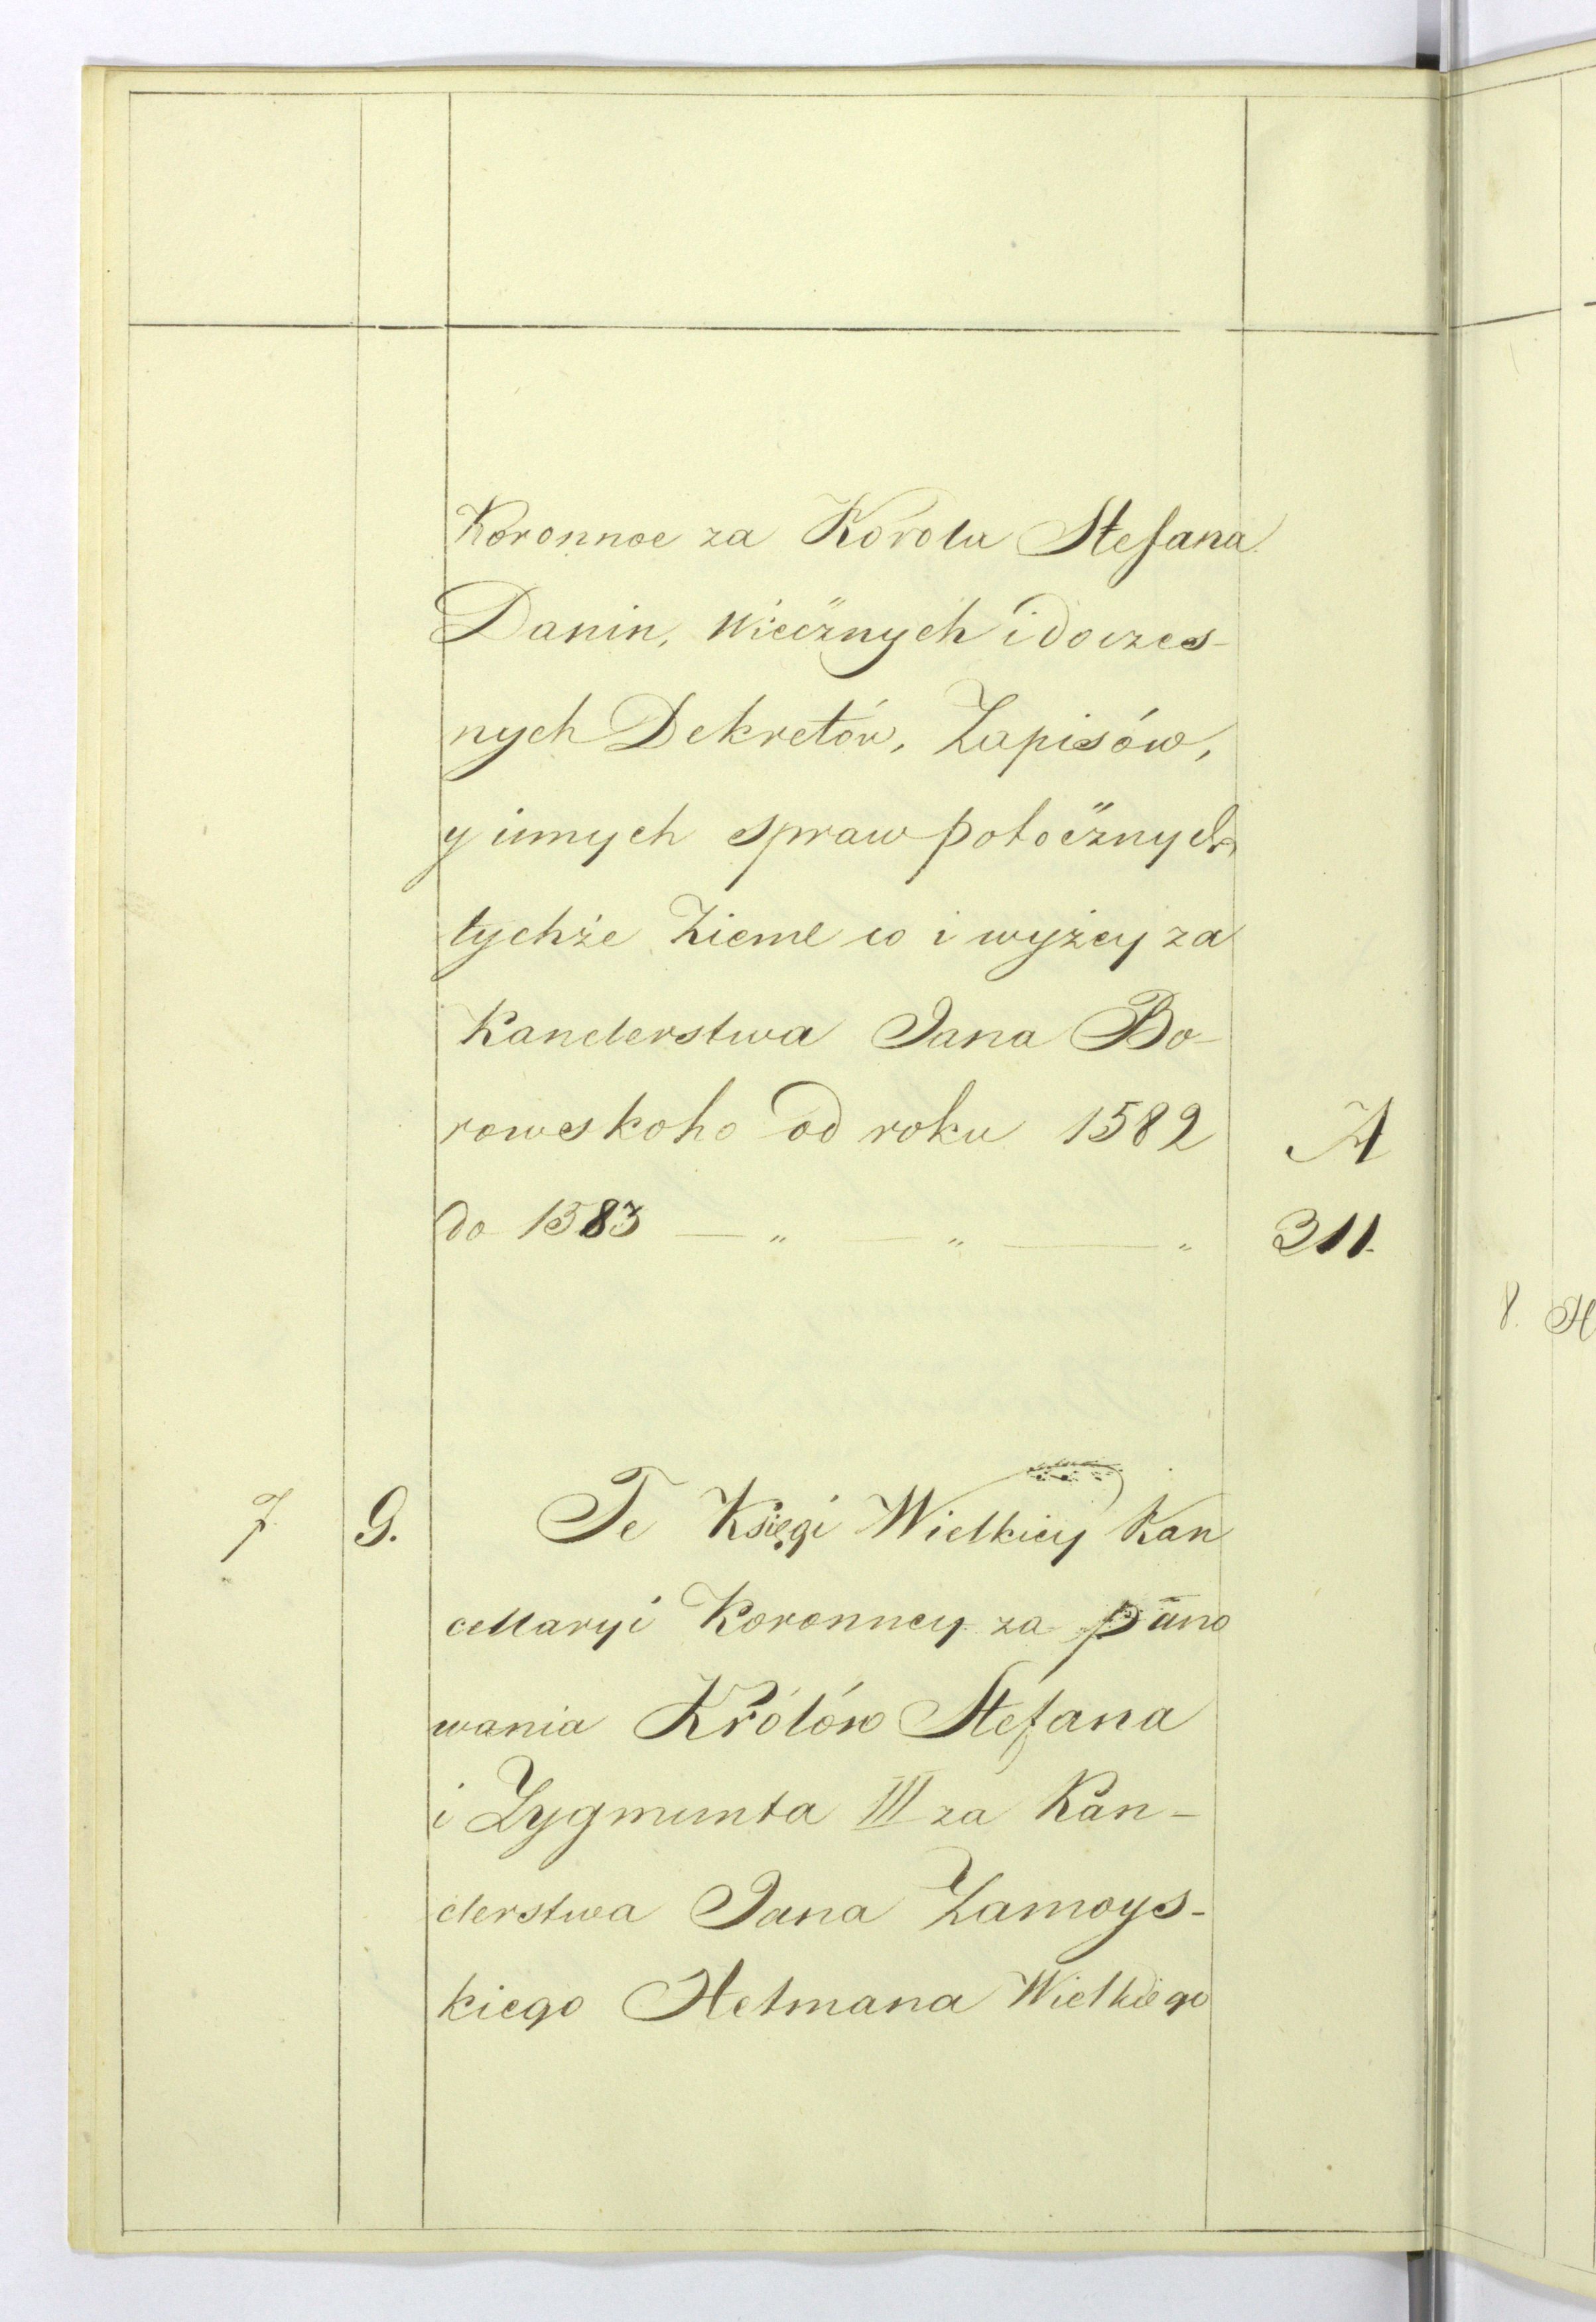 Koronnoe za Korola Stefana
Danin, Wiecznych i docześ-
nych Dekretów, Zapisów,
y innych spraw potocznych
tychże Zieml co i wyżey za
Kanclerstwa Jana Bo-
rowskoho od roku 1582 A
do 1583 — " — " — " 311.
7 G. Te Księgi Wielkiey Kan
cellaryi Koronney za pano
wania Królów Stefana
i Zygmunta III za Kan-
clerstwa Jana Zamoys-
kiego Hetmana Wielkiego
8. H